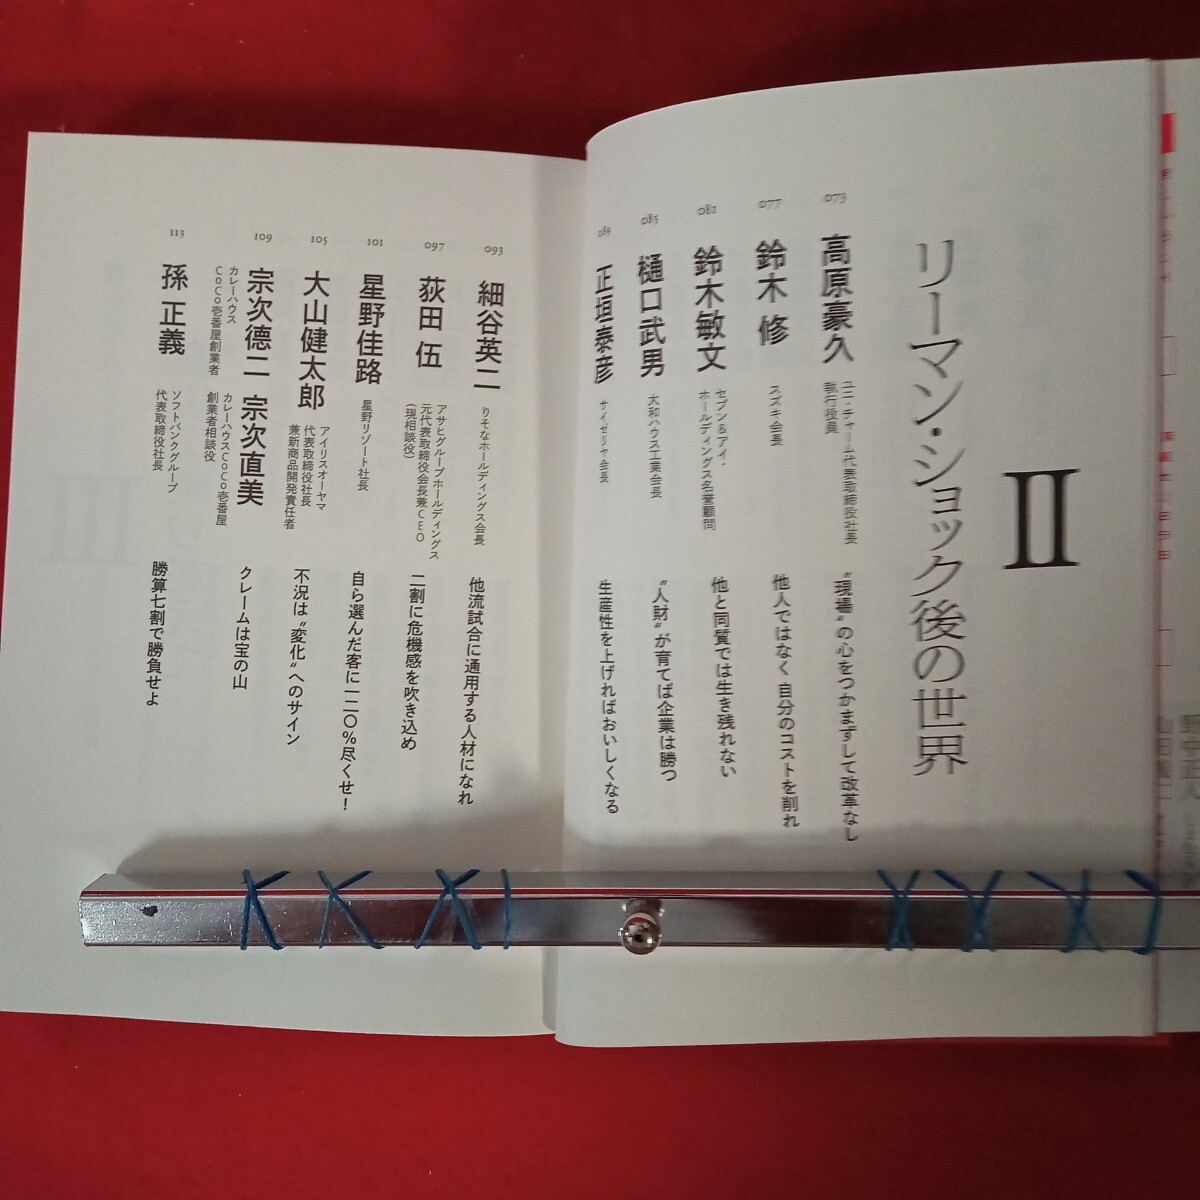 II
リーマン・ショック後の世界
073
高原豪久
ユニ・チャーム代表取締役社長
執行役員
〝現場〟の心をつかまずして改革なし
077
鈴木 修
スズキ会長
他人ではなく自分のコストを削れ
081
鈴木敏文
セブン&アイ・
ホールディングス名誉顧問
他と同質では生き残れない
085
樋口武男
大和ハウス工業会長
〝人財〟が育てば企業は勝つ
089
正垣泰彦
サイゼリヤ会長
生産性を上げればおいしくなる
093
細谷英二
りそなホールディングス会長
他流試合に通用する人材になれ
097
荻田 伍
アサヒグループホールディングス
元代表取締役会長兼CEO
(現相談役)
二割に危機感を吹き込め
101
星野佳路
星野リゾート社長
自ら選んだ客に一二〇%尽くせ!
105
大山健太郎
アイリスオーヤマ
代表取締役社長
兼新商品開発責任者
不況は〝変化〟へのサイン
109
宗次德二
カレーハウス
CoCo壱番屋創業者
宗次直美
カレーハウスCoCo壱番屋
創業者相談役
クレームは宝の山
113
孫 正義
ソフトバンクグループ
代表取締役社長
勝算七割で勝負せよ